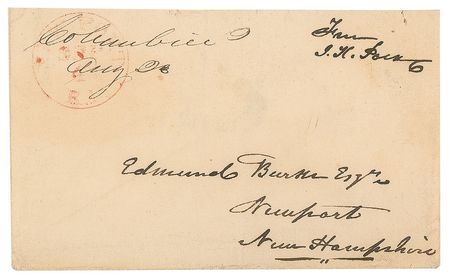 Columbia
Aug 2
Free
J. K. Polk
Edmund Burke Esqr.
Newport
New Hampshire